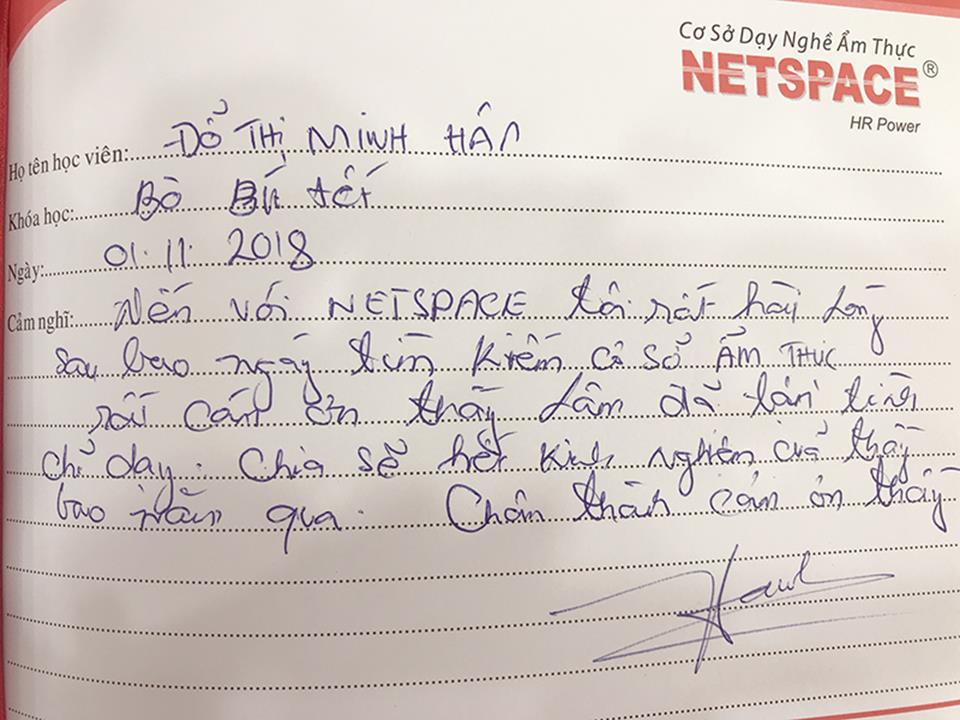 Cơ Sở Dạy Nghề Ẩm Thực
NETSPACE®
HR Power
Họ tên học viên: ĐỔ THỊ MINH HÂN
Khóa học: Bò Bít tết
Ngày: 01.11.2018
Cảm nghĩ: Đến với NETSPACE tôi rất hài lòng
sau bao ngày tìm kiếm cơ sở ẨM THỰC
rất cám ơn thầy Lâm đã tận tình
chỉ dạy. Chia sẽ hết kinh nghiệm của thầy
bao năm qua. Chân thành cảm ơn thầy